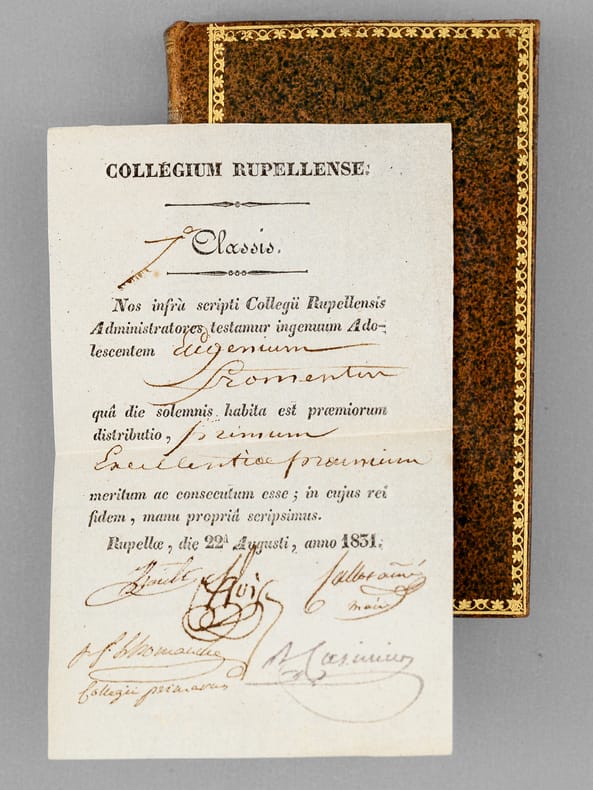 COLLEGIUM RUPELLENSE.
7ª Classis.
Nos infrà scripti Collegii Rupellensis
Administratores testamur ingenuum Ado-
lescentem Eugenium
Fromentin
quâ die solemnis habita est præmiorum
distributio, primum
Excellentiæ præmium
meritum ac consecutum esse; in cujus rei
fidem, manu propriâ scripsimus.
Rupellæ, die 22ª Augusti, anno 1831.
maire
Collegii primarius
Casimir